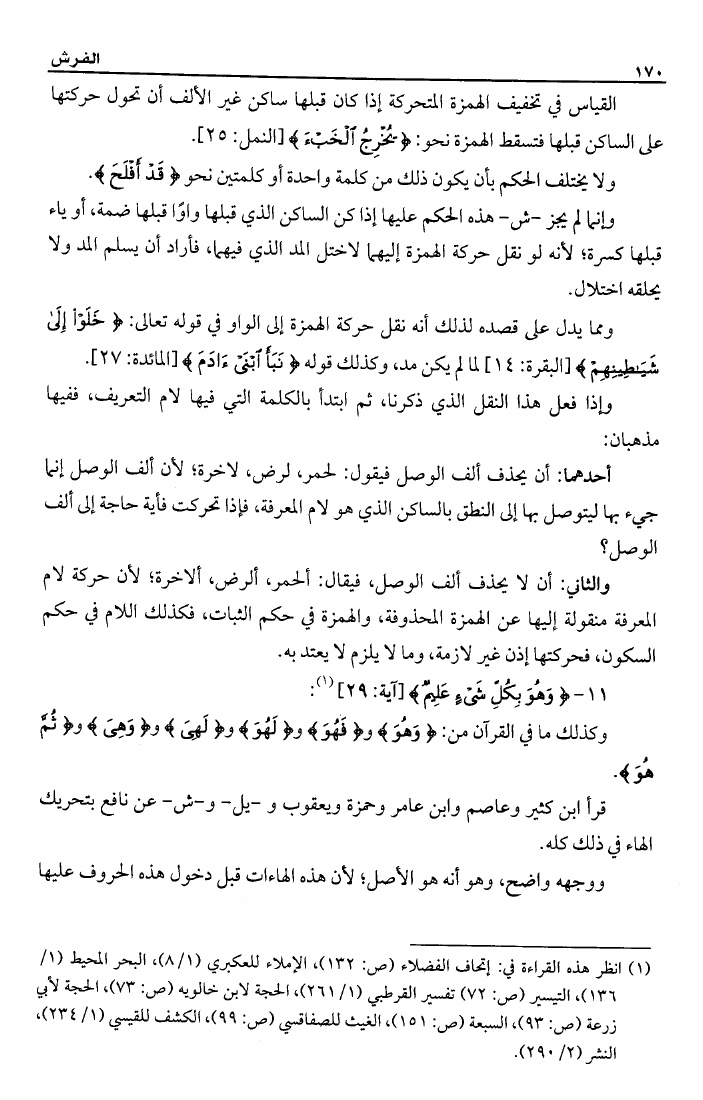 ١٧٠ الفرش
القياس في تخفيف الهمزة المتحركة إذا كان قبلها ساكن غير الألف أن تحول حركتها
على الساكن قبلها فتسقط الهمزة نحو: ﴿ يُخْرِجُ ٱلْخَبْءَ ﴾ [النمل: ٢٥].
ولا يختلف الحكم بأن يكون ذلك من كلمة واحدة أو كلمتين نحو ﴿ قَدْ أَفْلَحَ ﴾.
وإنما لم يجز -ش- هذه الحكم عليها إذا كن الساكن الذي قبلها واوًا قبلها ضمة، أو ياء
قبلها كسرة؛ لأنه لو نقل حركة الهمزة إليهما لاختل المد الذي فيهما، فأراد أن يسلم المد ولا
يحلقه اختلال.
ومما يدل على قصده لذلك أنه نقل حركة الهمزة إلى الواو في قوله تعالى: ﴿ خَلَوْا۟ إِلَىٰ
شَيَـٰطِينِهِمْ ﴾ [البقرة: ١٤] لما لم يكن مد، وكذلك قوله ﴿ نَبَأَ ٱبْنَىْ ءَادَمَ ﴾ [المائدة: ٢٧].
وإذا فعل هذا النقل الذي ذكرنا، ثم ابتدأ بالكلمة التي فيها لام التعريف، ففيها
مذهبان:
أحدهما: أن يحذف ألف الوصل فيقول: لحمر، لرض، لاخرة؛ لأن ألف الوصل إنما
جيء بها ليتوصل بها إلى النطق بالساكن الذي هو لام المعرفة، فإذا تحركت فأية حاجة إلى ألف
الوصل؟
والثاني: أن لا يحذف ألف الوصل، فيقال: ألحمر، ألرض، ألاخرة؛ لأن حركة لام
المعرفة منقولة إليها عن الهمزة المحذوفة، والهمزة في حكم الثبات، فكذلك اللام في حكم
السكون، فحركتها إذن غير لازمة، وما لا يلزم لا يعتد به.
١١- ﴿ وَهُوَ بِكُلِّ شَىْءٍ عَلِيمٌ ﴾ [آية: ٢٩] (١):
وكذلك ما في القرآن من: ﴿ وَهُوَ ﴾ و﴿ فَهُوَ ﴾ و﴿ لَهُوَ ﴾ و﴿ لَهِىَ ﴾ و﴿ وَهِىَ ﴾ و﴿ ثُمَّ
هُوَ ﴾.
قرأ ابن كثير وعاصم وابن عامر وحمزة ويعقوب و -يل- و-ش- عن نافع بتحريك
الهاء في ذلك كله.
ووجهه واضح، وهو أنه هو الأصل؛ لأن هذه الهاءات قبل دخول هذه الحروف عليها
(١) انظر هذه القراءة في: إتحاف الفضلاء (ص: ١٣٢)، الإملاء للعكبري (١/ ٨)، البحر المحيط (١/
١٣٦)، التيسير (ص: ٧٢) تفسير القرطبي (١/ ٢٦١)، الحجة لابن خالويه (ص: ٧٣)، الحجة لأبي
زرعة (ص: ٩٣)، السبعة (ص: ١٥١)، الغيث للصفاقسي (ص: ٩٩)، الكشف للقيسي (١/ ٢٣٤)،
النشر (٢/ ٢٩٠).